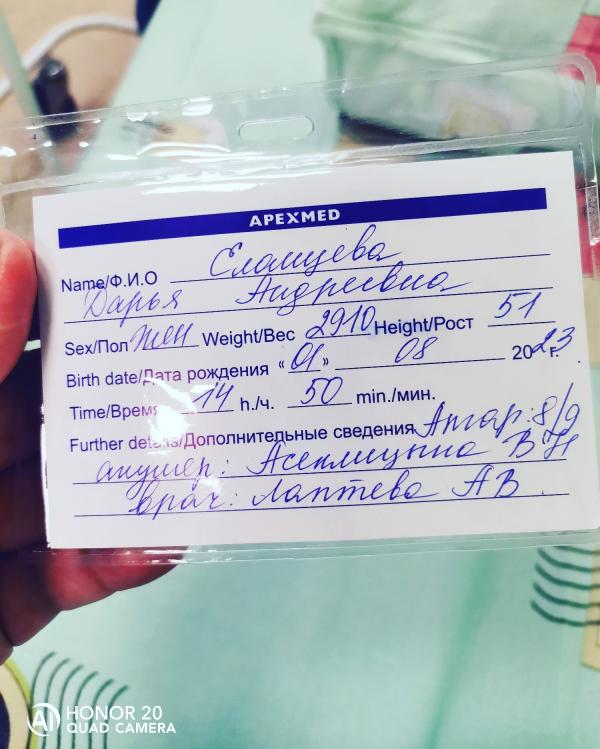 APEXMED
Name/Ф.И.О Еламцева
Дарья Андреевна
Sex/Пол жен Weight/Вес 2910 Height/Рост 51
Birth date/Дата рождения «01» 08 2023 г.
Time/Время 14 h./ч. 50 min./мин.
Further details/Дополнительные сведения Апгар: 8/9
акушер: В Н
врач: Лаптева АВ
AI HONOR 20
QUAD CAMERA